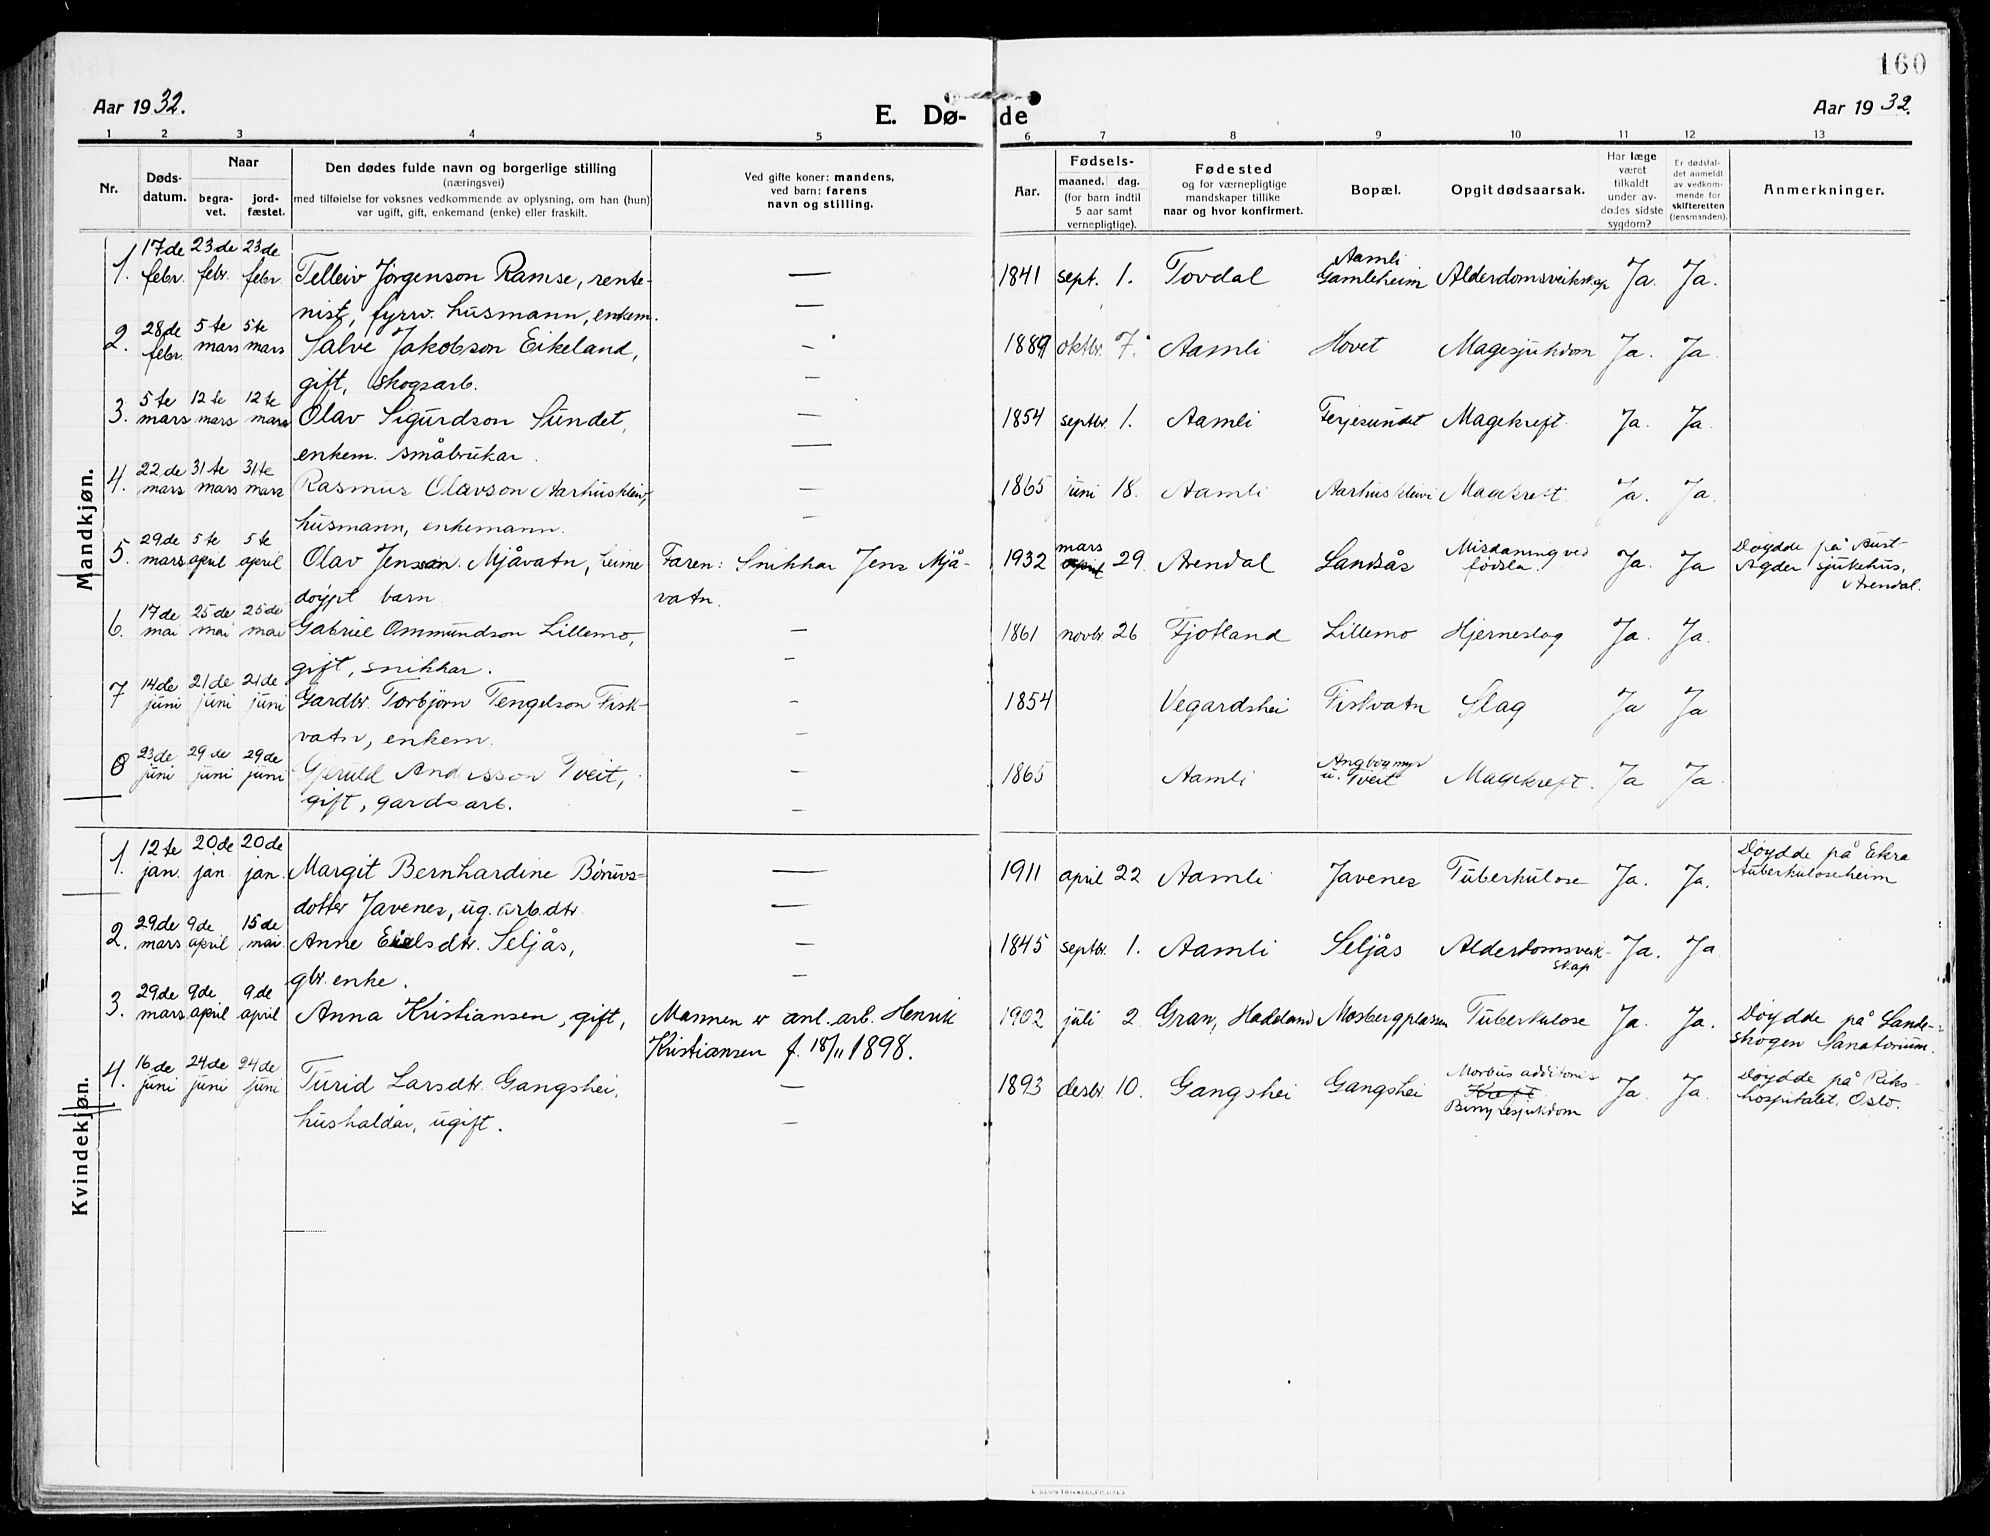 160
Aar 1932.
E. Dø-de
Aar 1932.
1 2 3 4 5 6 7 8 9 10 11 12 13
Nr.
Døds-
datum.
Naar
begra-
vet.
jord-
fæstet.
Den dødes fulde navn og borgerlige stilling
(næringsvei)
med tilføielse for voksnes vedkommende av oplysning, om han (hun)
var ugift, gift, enkemand (enke) eller fraskilt.
Ved gifte koner: mandens,
ved barn: farens
navn og stilling.
Aar.
Fødsels-
maaned. dag.
(for barn indtil
5 aar samt
vernepligtige).
Fødested
og for værnepligtige
mandskaper tillike
naar og hvor konfirmert.
Bopæl.
Opgit dødsaarsak.
Har læge
været
tilkaldt
under av-
dødes sidste
sygdom?
Er dødsfal-
det anmeldt
av vedkom-
mende for
skifteretten
(lensmanden).
Anmerkninger.
Mandkjøn.
1. 17de febr. 23de febr. 23de febr. Telleiv Jörgenson Ramse, rente-
nist, fyrrv. husmann, enkem. — — 1841 sept. 1. Tovdal Aamli Gamleheim Alderdomsveikskap Ja. Ja.
2. 28de febr. 5te mars 5te mars Salve Jakobson Eikeland,
gift, skogsarb. — — 1889 oktbr. 7. Aamli Hovet Magesjukdom Ja. Ja.
3. 5te mars 12te mars 12te mars Olav Sigurdson Sundet,
enkem. småbrukar. — — 1854 septbr. 1. Aamli Ferjesundet Magekreft Ja. Ja.
4. 22de mars 31te mars 31te mars Rasmus Olavson Aarhuskleiv,
husmann, enkemann. — — 1865 juni 18. Aamli Aarhuskleivi Magekreft. Ja. Ja.
5. 29de mars 5te april 5te april Olav Jensson Mjåvatn, heime
døypt barn. Faren: Snikkar Jens Mjå-
vatn. 1932 mars april 29. Arendal Landsås Misdaning ved
fødsla. Ja. Ja Døydde på Aust-
Agder sjukehus,
Arendal.
6. 17de mai 25de mai 25de mai Gabriel Ommundson Lillemo,
gift, snikkar. — — 1861 novbr 26 Fjotland Lillemo Hjerneslag Ja. Ja.
7 14de juni 21de juni 21de juni Gardbr. Torbjørn Tengelson Fisk-
vatn, enkem. — — 1854 Vegardshei Fiskvatn Slag Ja Ja
8 23de juni 29de juni 29de juni Gjeruld Andersson Tveit,
gift, gardsarb. — — 1865 Aamli Angbogmyr
u. Tveit Magekreft. Ja Ja.
Kvindekjøn.
1. 12te jan. 20de jan. 20de jan. Margit Bernhardine Børuvs-
dotter Javenes, ug. arb.dtr. — — 1911 april 22 Aamli Javenes Tuberkulose Ja. Ja. Døydde på Ekra
tuberkuloseheim
2. 29de mars 9de april 15de mai. Anne Eielsdtr. Seljås,
gbr. enke. — — 1845 septbr. 1. Aamli Seljås Alderdomsveik-
skap Ja. Ja
3. 29de mars 9de april 9de april Anna Kristiansen, gift, Mannen er anl. arb. Henrik
Kristiansen f. 18/11 1898. 1902 juli 2. Gran, Hadeland Mosbergplassen Tuberkulose Ja. Ja. Døydde på Lande-
skogen Sanatorium.
4. 16de juni 24de juni 24de juni Turid Larsdtr. Gangshei,
hushaldar, ugift. — — 1893 desbr 10. Gangshei Gangshei Morbus additonis
Kreft
Binyresjukdom Ja. Ja. Døydde på Riks-
hospitalet, Oslo.